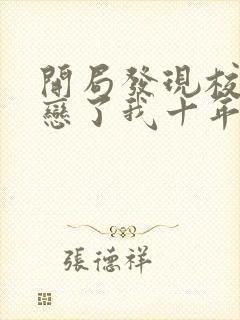 開局發現校
戀了我十年
張德祥